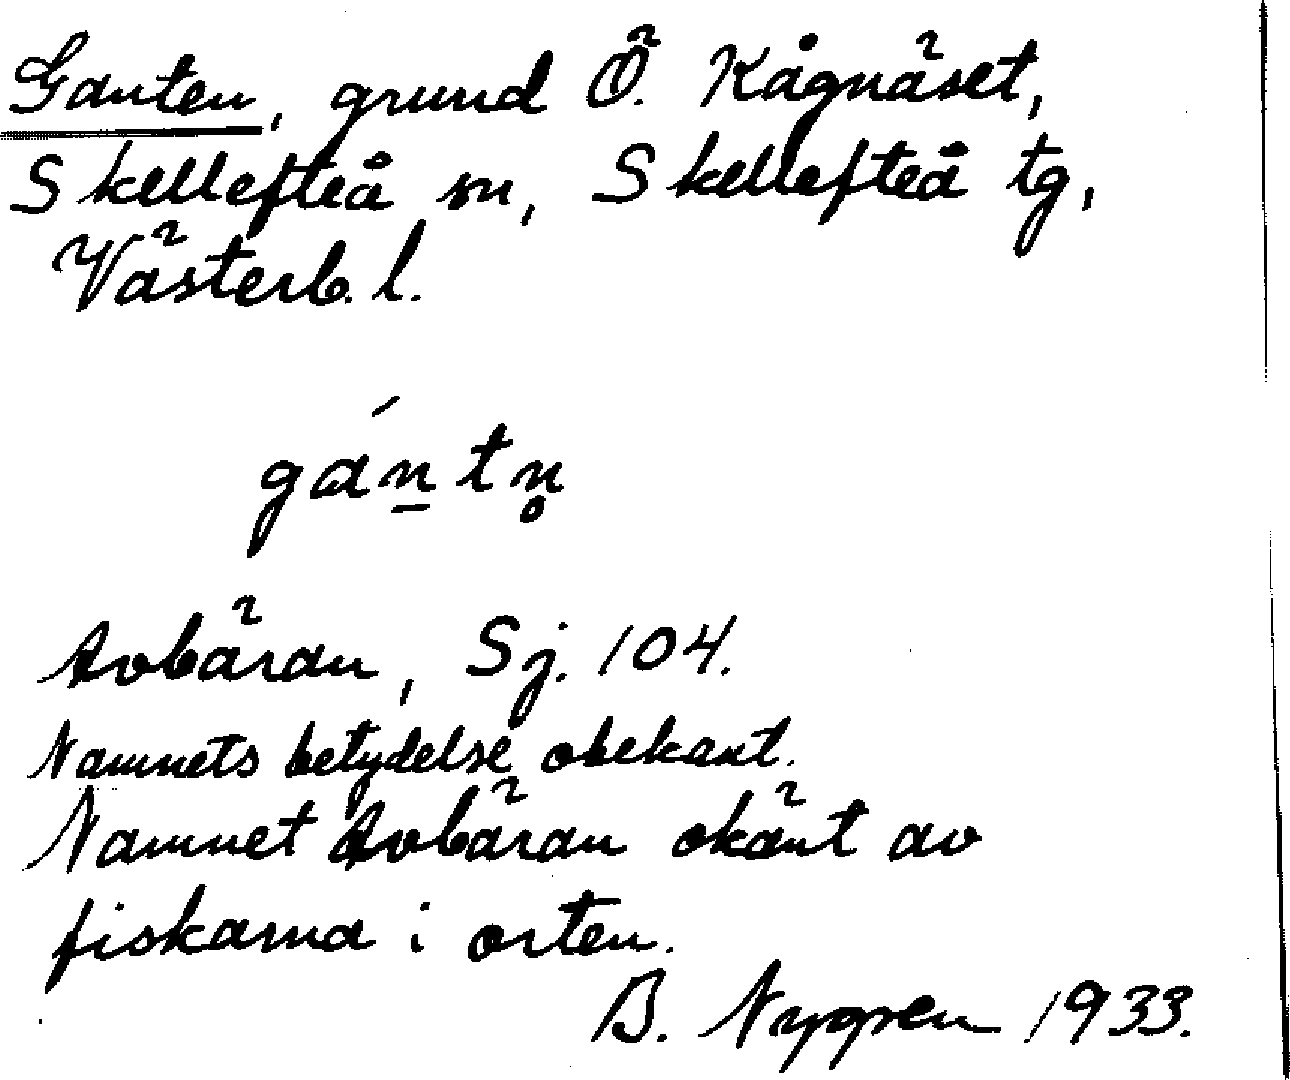 Ganten, grund Ö. Kågnäset,
Skellefteå sn, Skellefteå tg,
Västerb. l.
gán̲tn̥
Avbäran, Sj. 104.
Namnets betydelse obekant.
Namnet Avbäran okänt av
fiskarna i orten.
B. Nygren 1933.